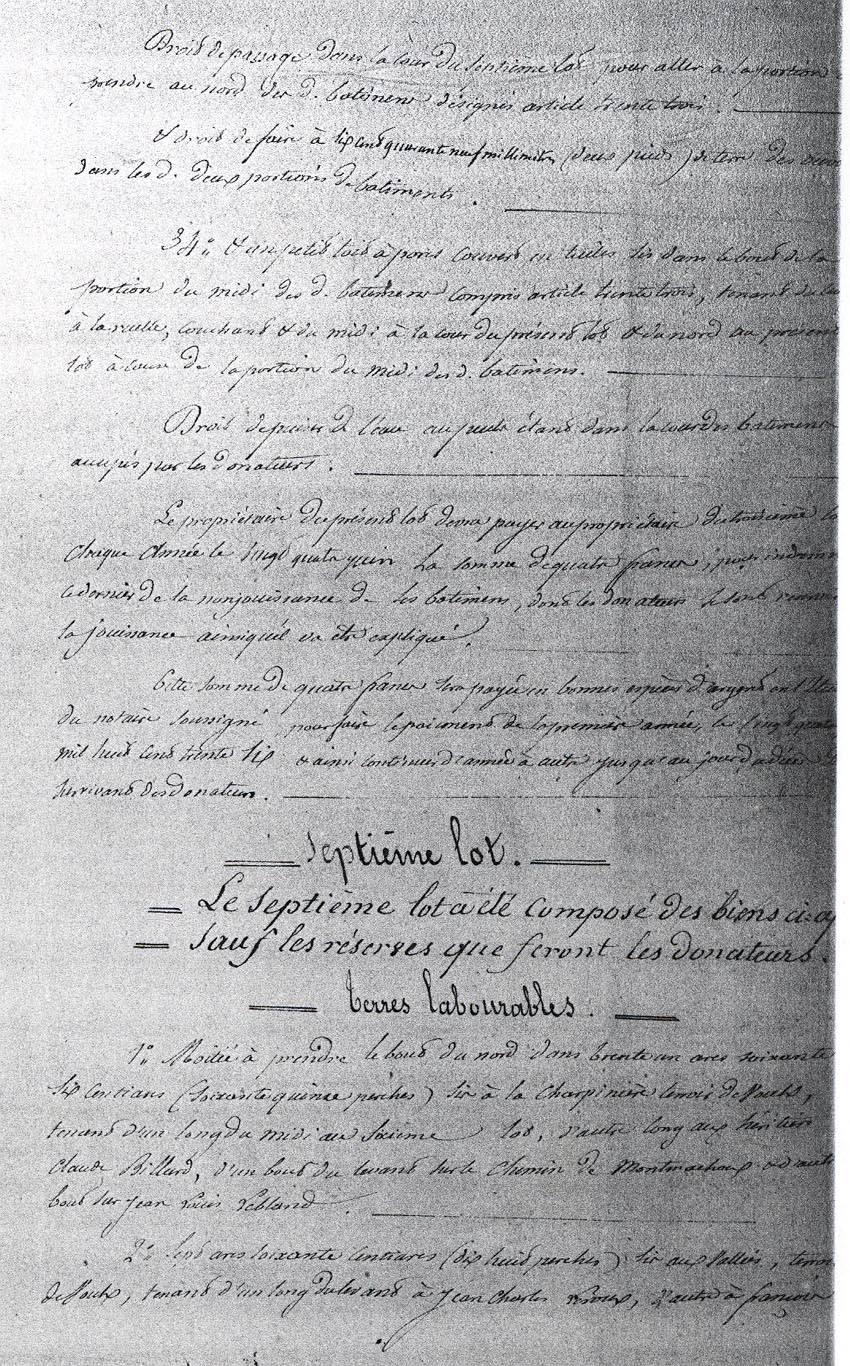 Droit de passage dans la cour du septième lot pour aller à la portion
prendre au nord des d. batimens désignés article trente trois.
Et droit de faire à six cent quarante neuf millimètres (deux pieds) de terre des
dans les d. deux portions de batiments.
34°. Et un petit toit à porcs couvert en tuiles sis dans le bout de la
portion du midi des d. batimens compris article trente trois, tenant du
à la ruelle, couchant & du midi à la cour du présent lot & du nord au present
lot à cause de la portion du midi des d. batimens.
Droit de puiser de l'eau au puits étant dans la cour des batimens
occupés par les donateurs.
Le propriétaire du présent lot devra payer au propriétaire du troisieme lot
chaque année le vingt quatre juin la somme de quatre francs, pour
ce dernier de la non jouissance de ses batimens, dont les donateurs se sont
la jouissance ainsi qu'il va être expliqué.
Cette somme de quatre francs sera payée en bonnes espèces d'argent en l'Etude
du notaire soussigné pour faire le paiement de la première année, le vingt quatre
mil huit cent trente six & ainsi continuer d'année à autre jusqu'au jour du décès
survivant des donateurs.
Septième lot.
Le Septième lot a été composé des biens ci-ap
sauf les réserves que feront les donateurs.
terres labourables.
1°. Moitié à prendre le bout du nord dans trente un ares soixante
six centiares (soixante quinze perches) sis à la Charpinière terroir de
tenant d'un long du midi au sixième lot, d'autre long aux héritiers
Claude Billard, d'un bout du levant sur le chemin de Montmachoux & d'autre
bout sur Jean Louis Lebland.
2°. Sept ares soixante centiares (dix huit perches) sis aux Vallées, terroir
tenant d'un long du levant à Jean Charles d'autre à françois